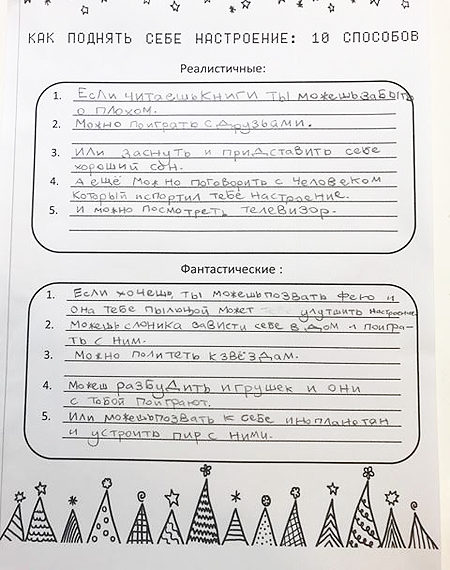 КАК ПОДНЯТЬ СЕБЕ НАСТРОЕНИЕ: 10 СПОСОБОВ
Реалистичные:
1. Если читаешь книги ты можешь забыть
о плохом.
2. Можно поиграть с друзьями.
3. Или заснуть и придставить себе
хороший сон.
4. А ещё можно поговорить с человеком
который испортил тебе настроение.
5. и можно посмотреть телевизор.
Фантастические :
1. Если хочешь, ты можешь позвать фею и
она тебе пыльцой может улутшить настроение
2. Можешь слоника зависти себе в дом и поигра-
ть с ним.
3. Можно политеть к звёздам.
4. Можеш разбудить игрушек и они
с тобой поиграют.
5. Или можешь позвать к себе инопланетян
и устроить пир с ними.